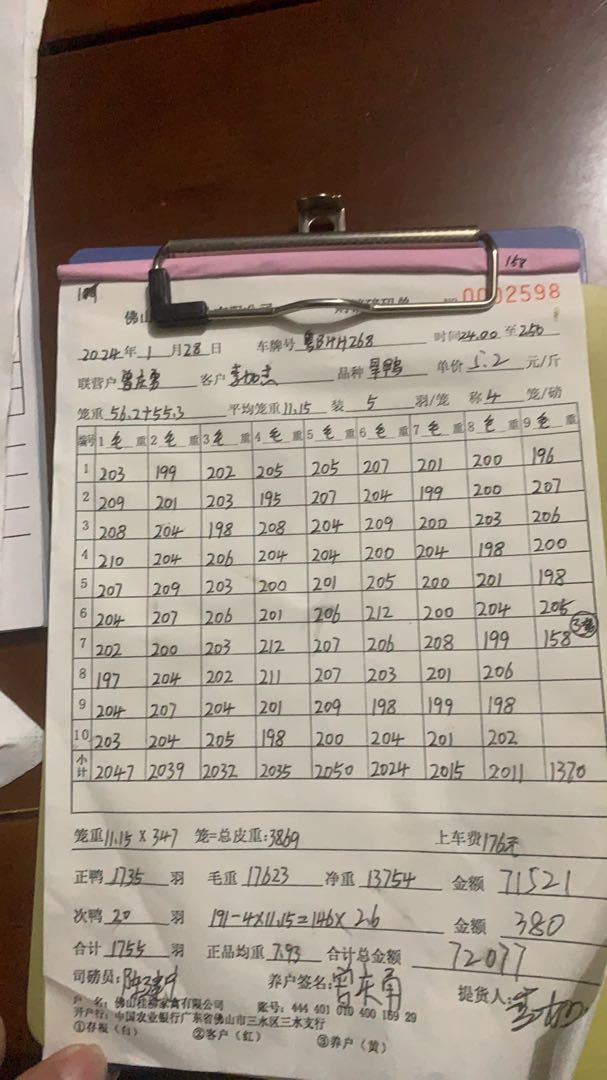 158
佛山
NO 0002598
2024年1月28日 车牌号 粤BHH268 时间24.00至250
联营户 客户 品种 单价5.2元/斤
笼重56.2+55.3 平均笼重11.15 装5羽/笼 称4笼/磅
编号 1毛重 2毛重 3毛重 4毛重 5毛重 6毛重 7毛重 8毛重 9毛重
1 203 199 202 205 205 207 201 200 196
2 209 201 203 195 207 204 199 200 207
3 208 204 198 208 204 209 200 203 206
4 210 204 206 204 204 200 204 198 200
5 207 209 203 200 201 205 200 201 198
6 204 207 206 201 206 212 200 204 205
7 202 200 203 212 207 206 208 199 158
8 197 204 202 211 207 203 201 206
9 204 207 204 201 209 198 199 198
10 203 204 205 198 200 204 201 202
小计 2047 2039 2032 2035 2050 2024 2015 2011 1370
笼重11.15×347 笼=总皮重:3869 上车费176元
正鸭1735羽 毛重17623 净重13754 金额71521
次鸭20羽 191-4×11.15=146×2.6 金额380
合计1755羽 正品均重7.93 合计总金额72077
司磅员: 养户签名: 提货人:
户 名:佛山 家禽有限公司 账号:444 401 010 400 159 29
开户行:中国农业银行广东省佛山市三水区三水支行
①存根（白） ②客户（红） ③养户（黄）